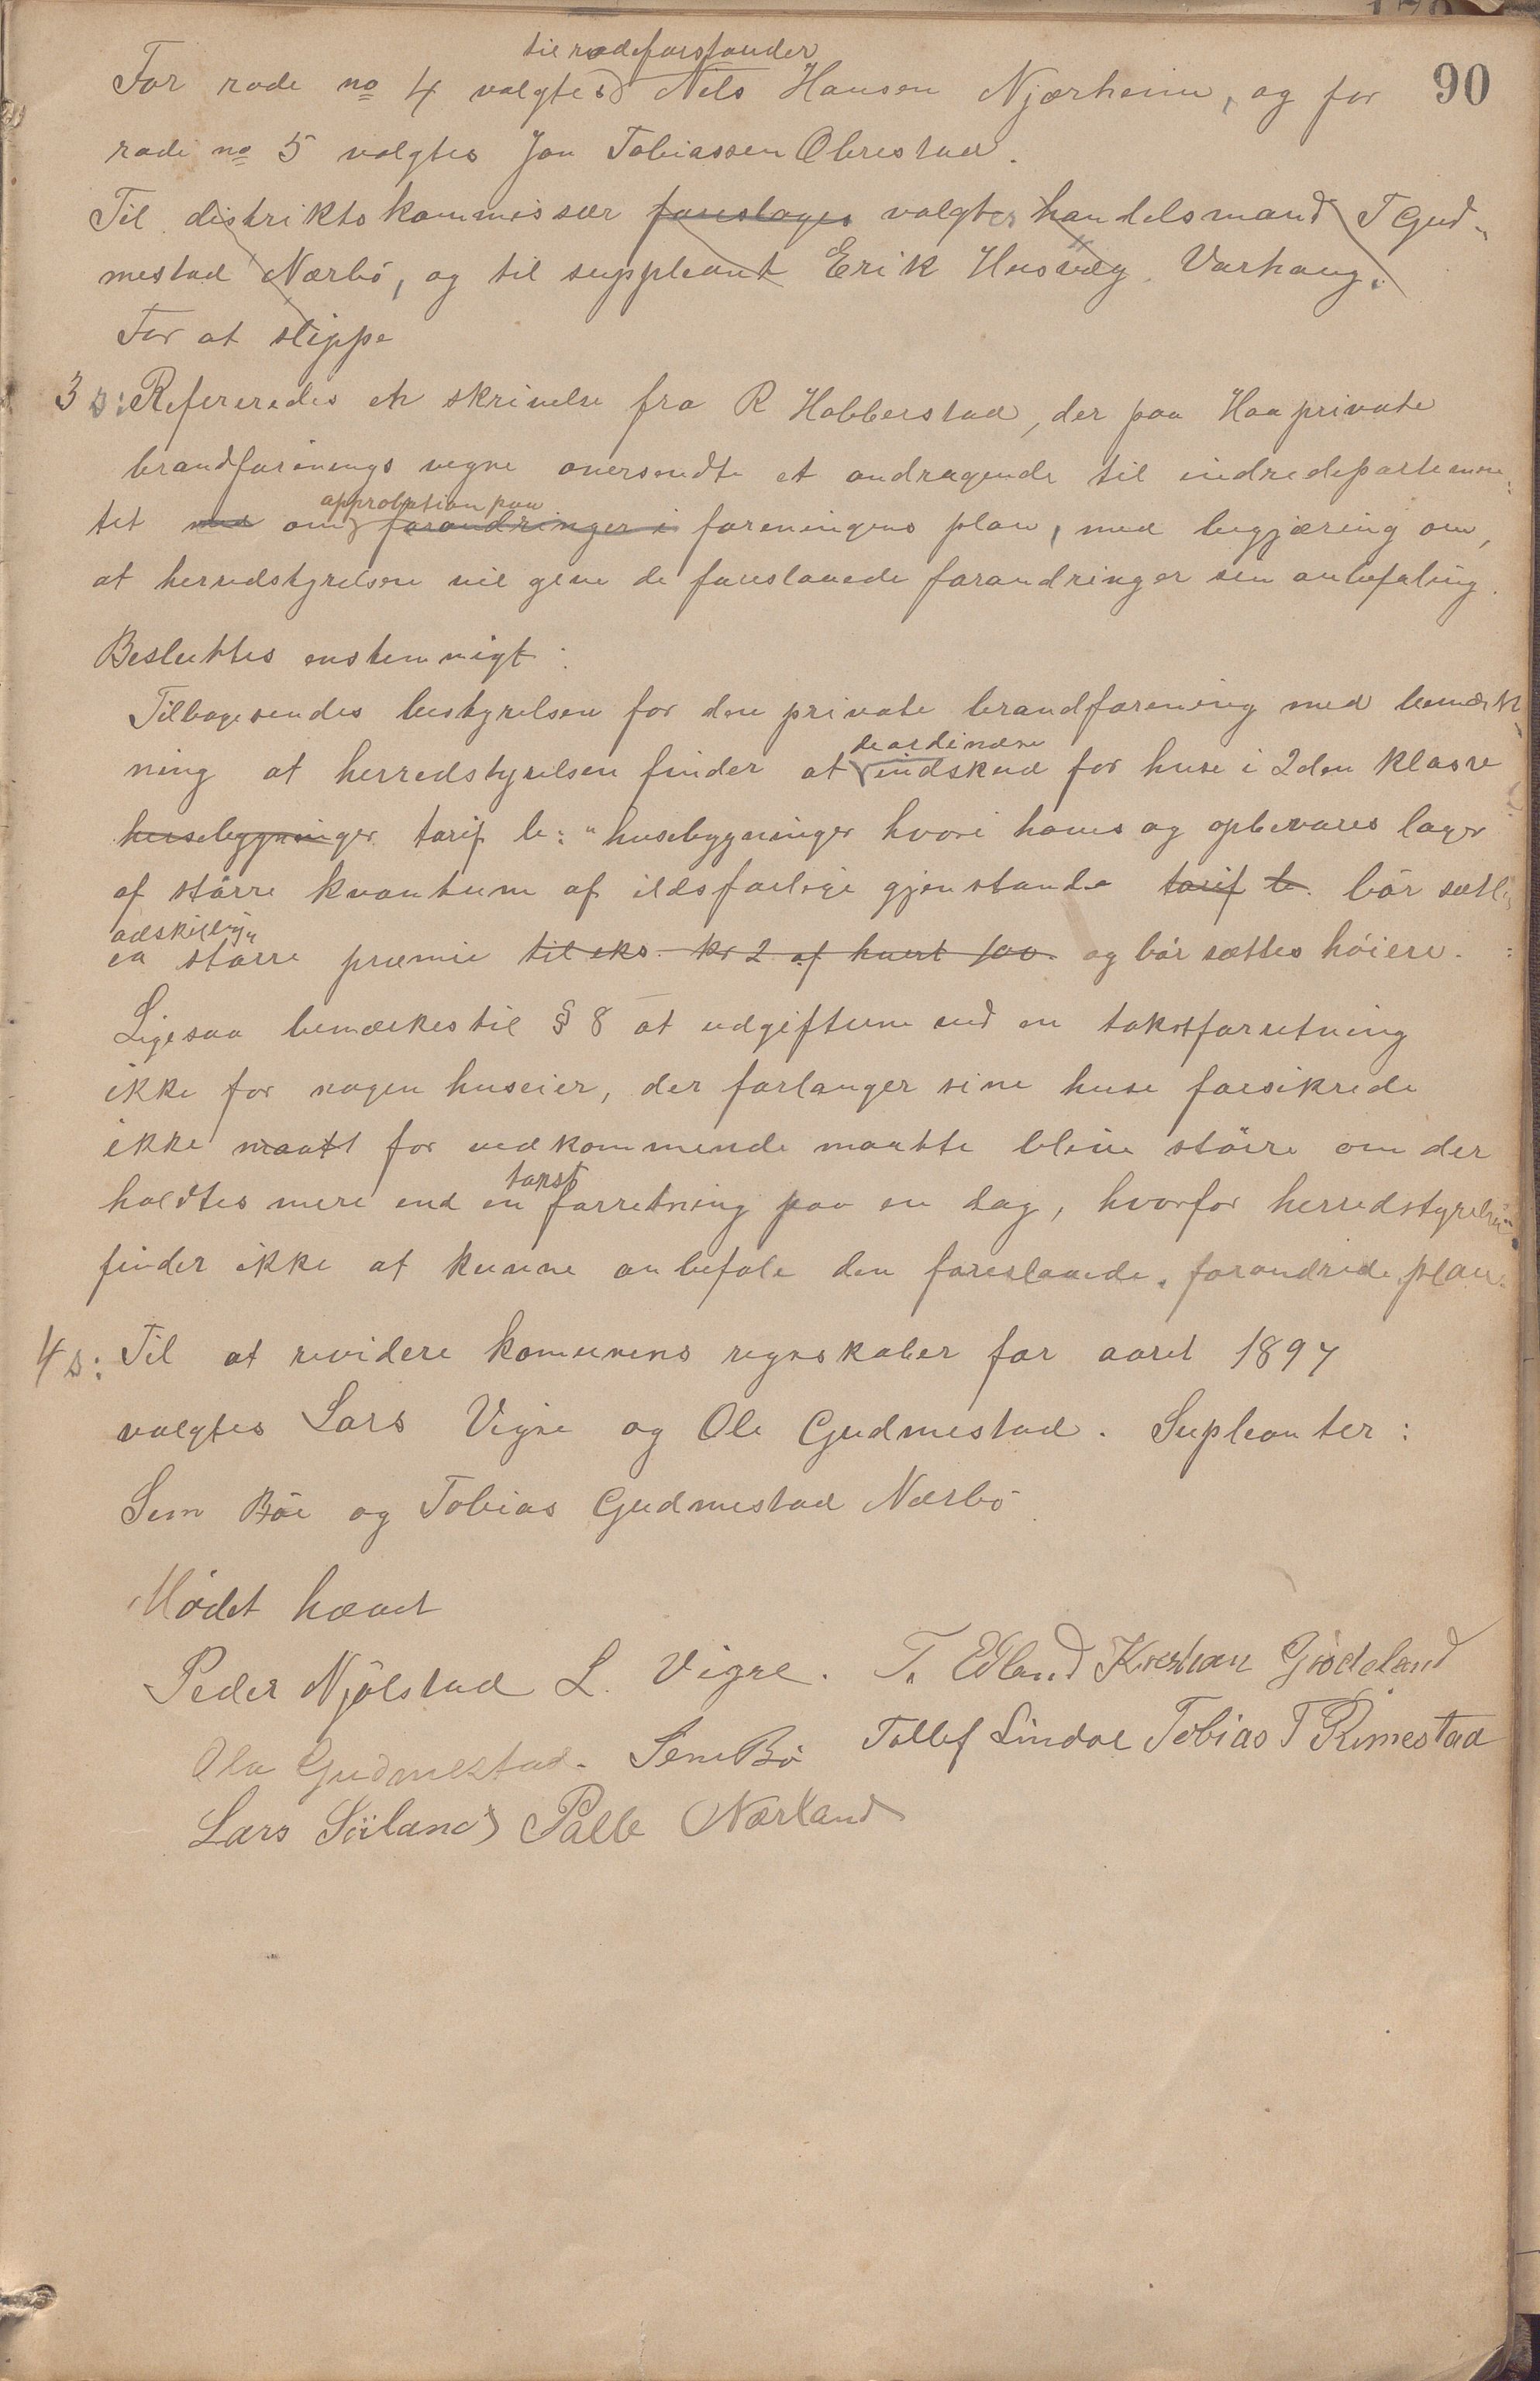 90
til rodeforstander
For rode no 4 valgtes Nils Hansen Njærheim, og for
rode no 5 valgtes Jon Tobiassen Obrestad.
Til distriktskommissær foreslages valgtes handelsmand T Gud-
mestad Nærbö, og til suppleant Erik Husvæg. Varhaug.
For at slippe
3 s: Refereredes en skrivelse fra R Hobberstad, der paa Haa private
brandforenings vegne oversendte et andragende til indredepartemen-
approbation paa
tet med om forandringer i foreningens plan, med begjæring om,
at herredstyrelsen vil give de foreslaaede forandringer sin anbefaling.
Besluttes enstemmigt:
Tilbagesendes bestyrelsen for den private brandforening med bemærk-
de ordinære
ning at herredstyrelsen finder at indskud for huse i 2den klasse
husebygninger tarif b: "husebygninger hvori haves og opbevares lager
af större kvantum af ildsfarlige gjenstande tarif b. bör sættes
adskillig
en större præmie til eks. kr 2 af hvert 100. og bör sættes höiere.
Ligesaa bemærkes til § 8 at udgifterne ved en takstforretning
ikke for nogen huseier, der forlanger sine huse forsikrede
ikke maatt for vedkommende maatte blive större om der
takst
holdtes mere end en forretning paa en dag, hvorfor herredstyrelsen
finder ikke at kunne anbefale den foreslaaede, forandrede plan.
4 s: Til at revidere komunens regnskaber for aaret 1897
valgtes Lars Vigre og Ole Gudmestad. Supleanter:
Sem Böe og Tobias Gudmestad Nærbö
Mödet hævet
Peder Njölstad L. Vigre. T. Edland Kristian Grödeland
Ola Gudmestad. Sem Bö Tollef Lindal Tobias T Rimestad
Lars Söiland Palle Nærland